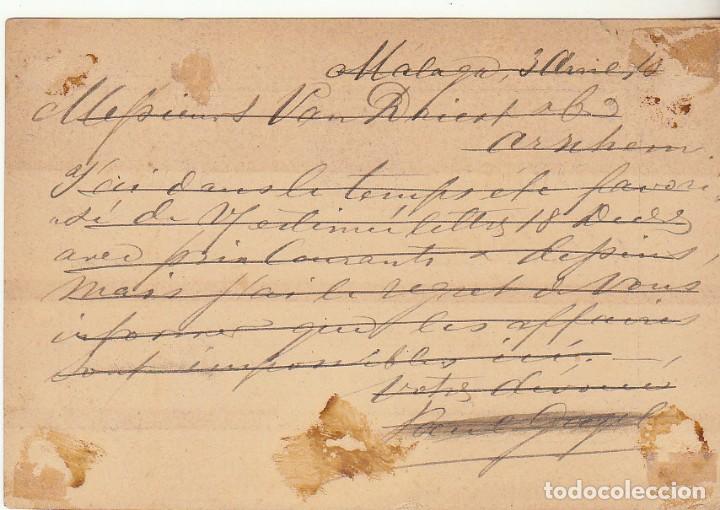 Málaga, 3
Messieurs Van & Co
Arnhem.
J'ai dans le temps été favori-
sé de V estimée lettre 18 Dec
avec prix courants & dessins,
mais j'ai le regret de vous
informer que les affaires
sont impossibles ici. —
Votre dévoué
todocoleccion.net